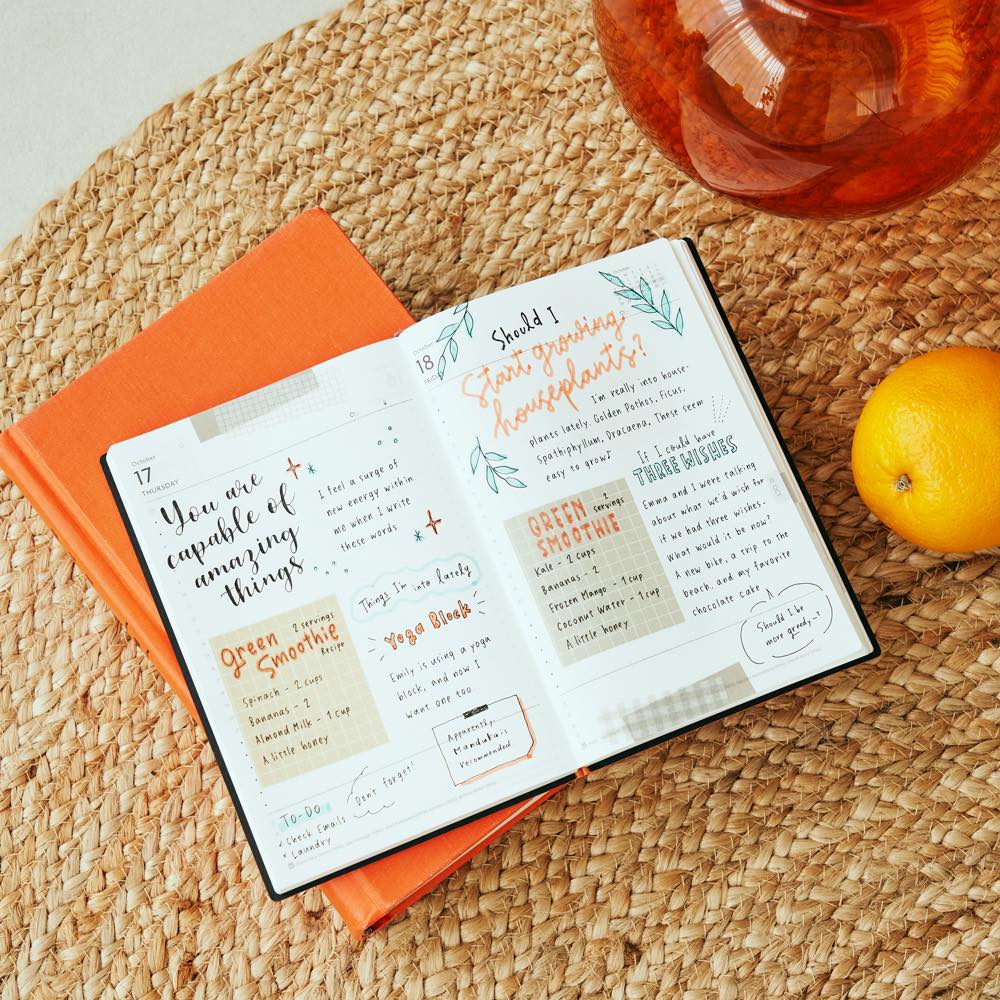 October
17
THURSDAY
You are
capable of
amazing
things
I feel a surge of
new energy within
me when I write
these words
2 servings
Green
Smoothie
Recipe
Spinach - 2 cups
Bananas - 2
Almond Milk - 1 cup
A little honey
Things I'm into lately
Yoga Block
Emily is using a yoga
block, and now I
want one too
Apparently,
Manduka is
recommended
Don't forget!
TO-DO
Check Emails
Laundry
October
18
FRIDAY
October
Should I
Start growing
houseplants?
I'm really into house-
plants lately. Golden Pothos, Ficus,
Spathiphyllum, Dracaena, These seem
easy to grow♪
2
servings
GREEN
SMOOTHIE
Kale - 2 cups
Bananas - 2
Frozen Mango - 1 cup
Coconut Water - 1 cup
A little honey
If I could have
THREE WISHES
Emma and I were talking
about what we'd wish for
if we had three wishes.
What would it be now?
A new bike, a trip to the
beach, and my favorite
chocolate cake
Should I be
more greedy...?